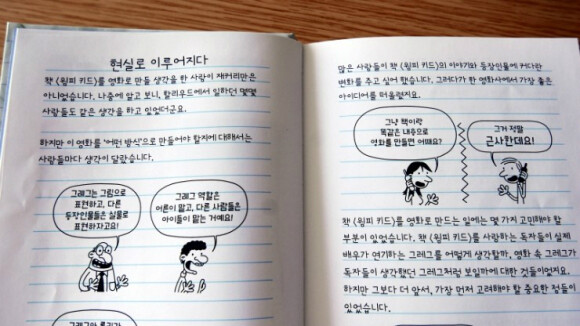 현실로 이루어지다
책 <윔피 키드>를 영화로 만들 생각을 한 사람이 재커리만은
아니었습니다. 나중에 알고 보니, 할리우드에서 일하던 몇몇
사람들도 같은 생각을 하고 있었더군요.
하지만 이 영화를 '어떤 방식'으로 만들어야 할지에 대해서는
사람들마다 생각이 달랐습니다.
그레그는 그림으로
표현하고, 다른
등장인물들은 실물로
표현하자고요!
그레그 역할은
어른이 맡고, 다른 사람들은
아이들이 맡는 거예요!
많은 사람들이 책 <윔피 키드>의 이야기와 등장인물에 커다란
변화를 주고 싶어 했습니다. 그러다가 한 영화사에서 가장 좋은
아이디어를 떠올렸지요.
그냥 책이랑
똑같은 내용으로
영화를 만들면 어때요?
그거 정말
근사한데요!
책 <윔피 키드>를 영화로 만드는 일에는 몇 가지 고민해야 할
부분이 있었습니다. 책 <윔피 키드>를 사랑하는 독자들이 실제
배우가 연기하는 그레그를 어떻게 생각할까, 영화 속 그레그가
독자들이 생각했던 그레그처럼 보일까에 대한 것들이었지요.
하지만 그보다 더 앞서, 가장 먼저 고려해야 할 중요한 점들이
있었습니다.